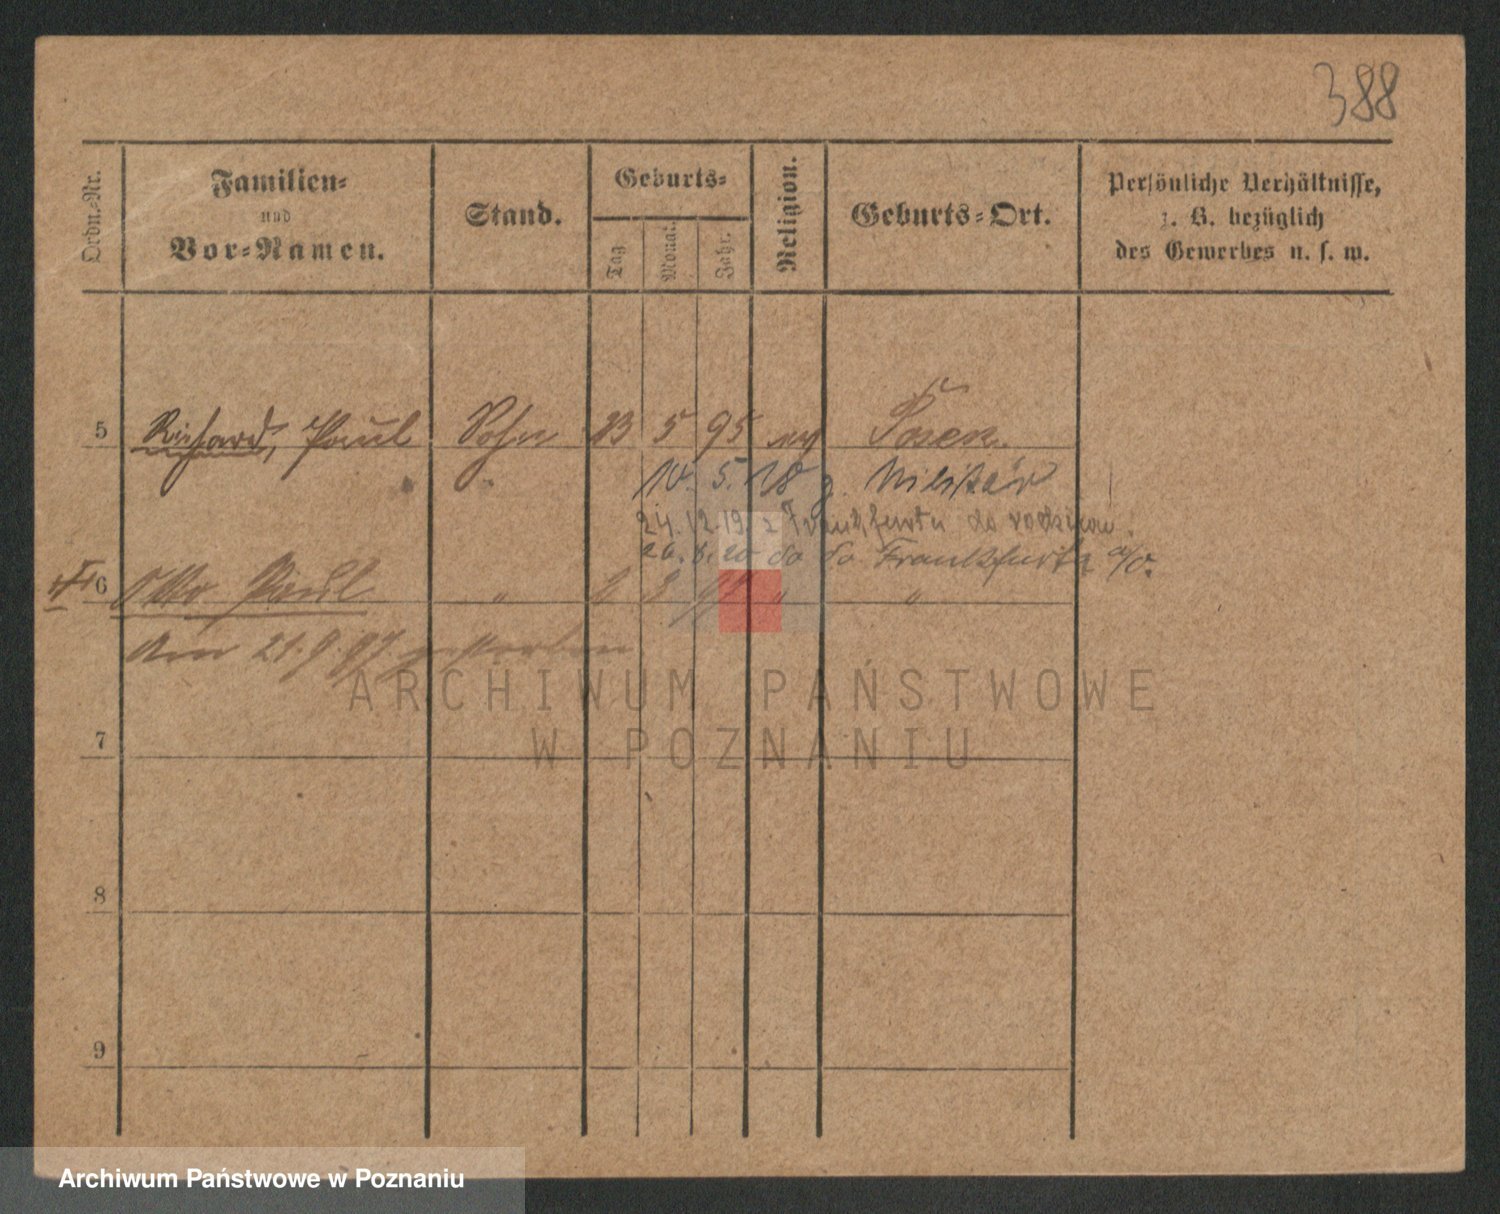 388
Ordn.-Nr.
Familien-
und
Vor-Namen.
Stand.
Geburts-
Tag
Monat.
Jahr.
Religion.
Geburts-Ort.
Persönliche Verhältnisse,
z. B. bezüglich
des Gewerbes u. s. w.
5 Richard, Paul Sohn 23 5 95 Posen.
10. 5. 18 z. Militär
24. 12. 19. z Frankfurtu do
20 do do Frankfurtu a/O.
6 Otto Paul " 3 " "
Am 21. 9. 97 gestorben
7
8
9
ARCHIWUM PAŃSTWOWE
W POZNANIU
Archiwum Państwowe w Poznaniu